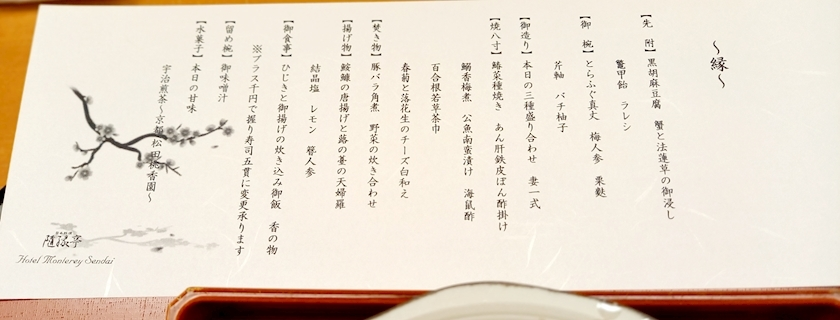 ～縁～
【先 附】黒胡麻豆腐 蟹と法蓮草の御浸し
鼈甲飴 ラレシ
【御 椀】とらふぐ真丈 梅人参 粟麩
芹軸 バチ柚子
【御造り】本日の三種盛り合わせ 妻一式
【焼八寸】鰆菜種焼き あん肝鉄皮ぽん酢掛け
鰯香梅煮 公魚南蛮漬け 海鼠酢
百合根若草茶巾
春菊と落花生のチーズ白和え
【焚き物】豚バラ角煮 野菜の炊き合わせ
【揚げ物】鮟鱇の唐揚げと蕗の薹の天婦羅
結晶塩 レモン 簪人参
【御食事】ひじきと御揚げの炊き込み御飯 香の物
※プラス千円で握り寿司五貫に変更承ります
【留め椀】御味噌汁
【水菓子】本日の甘味
宇治煎茶～京都松田桃香園～
随縁亭
Hotel Monterey Sendai